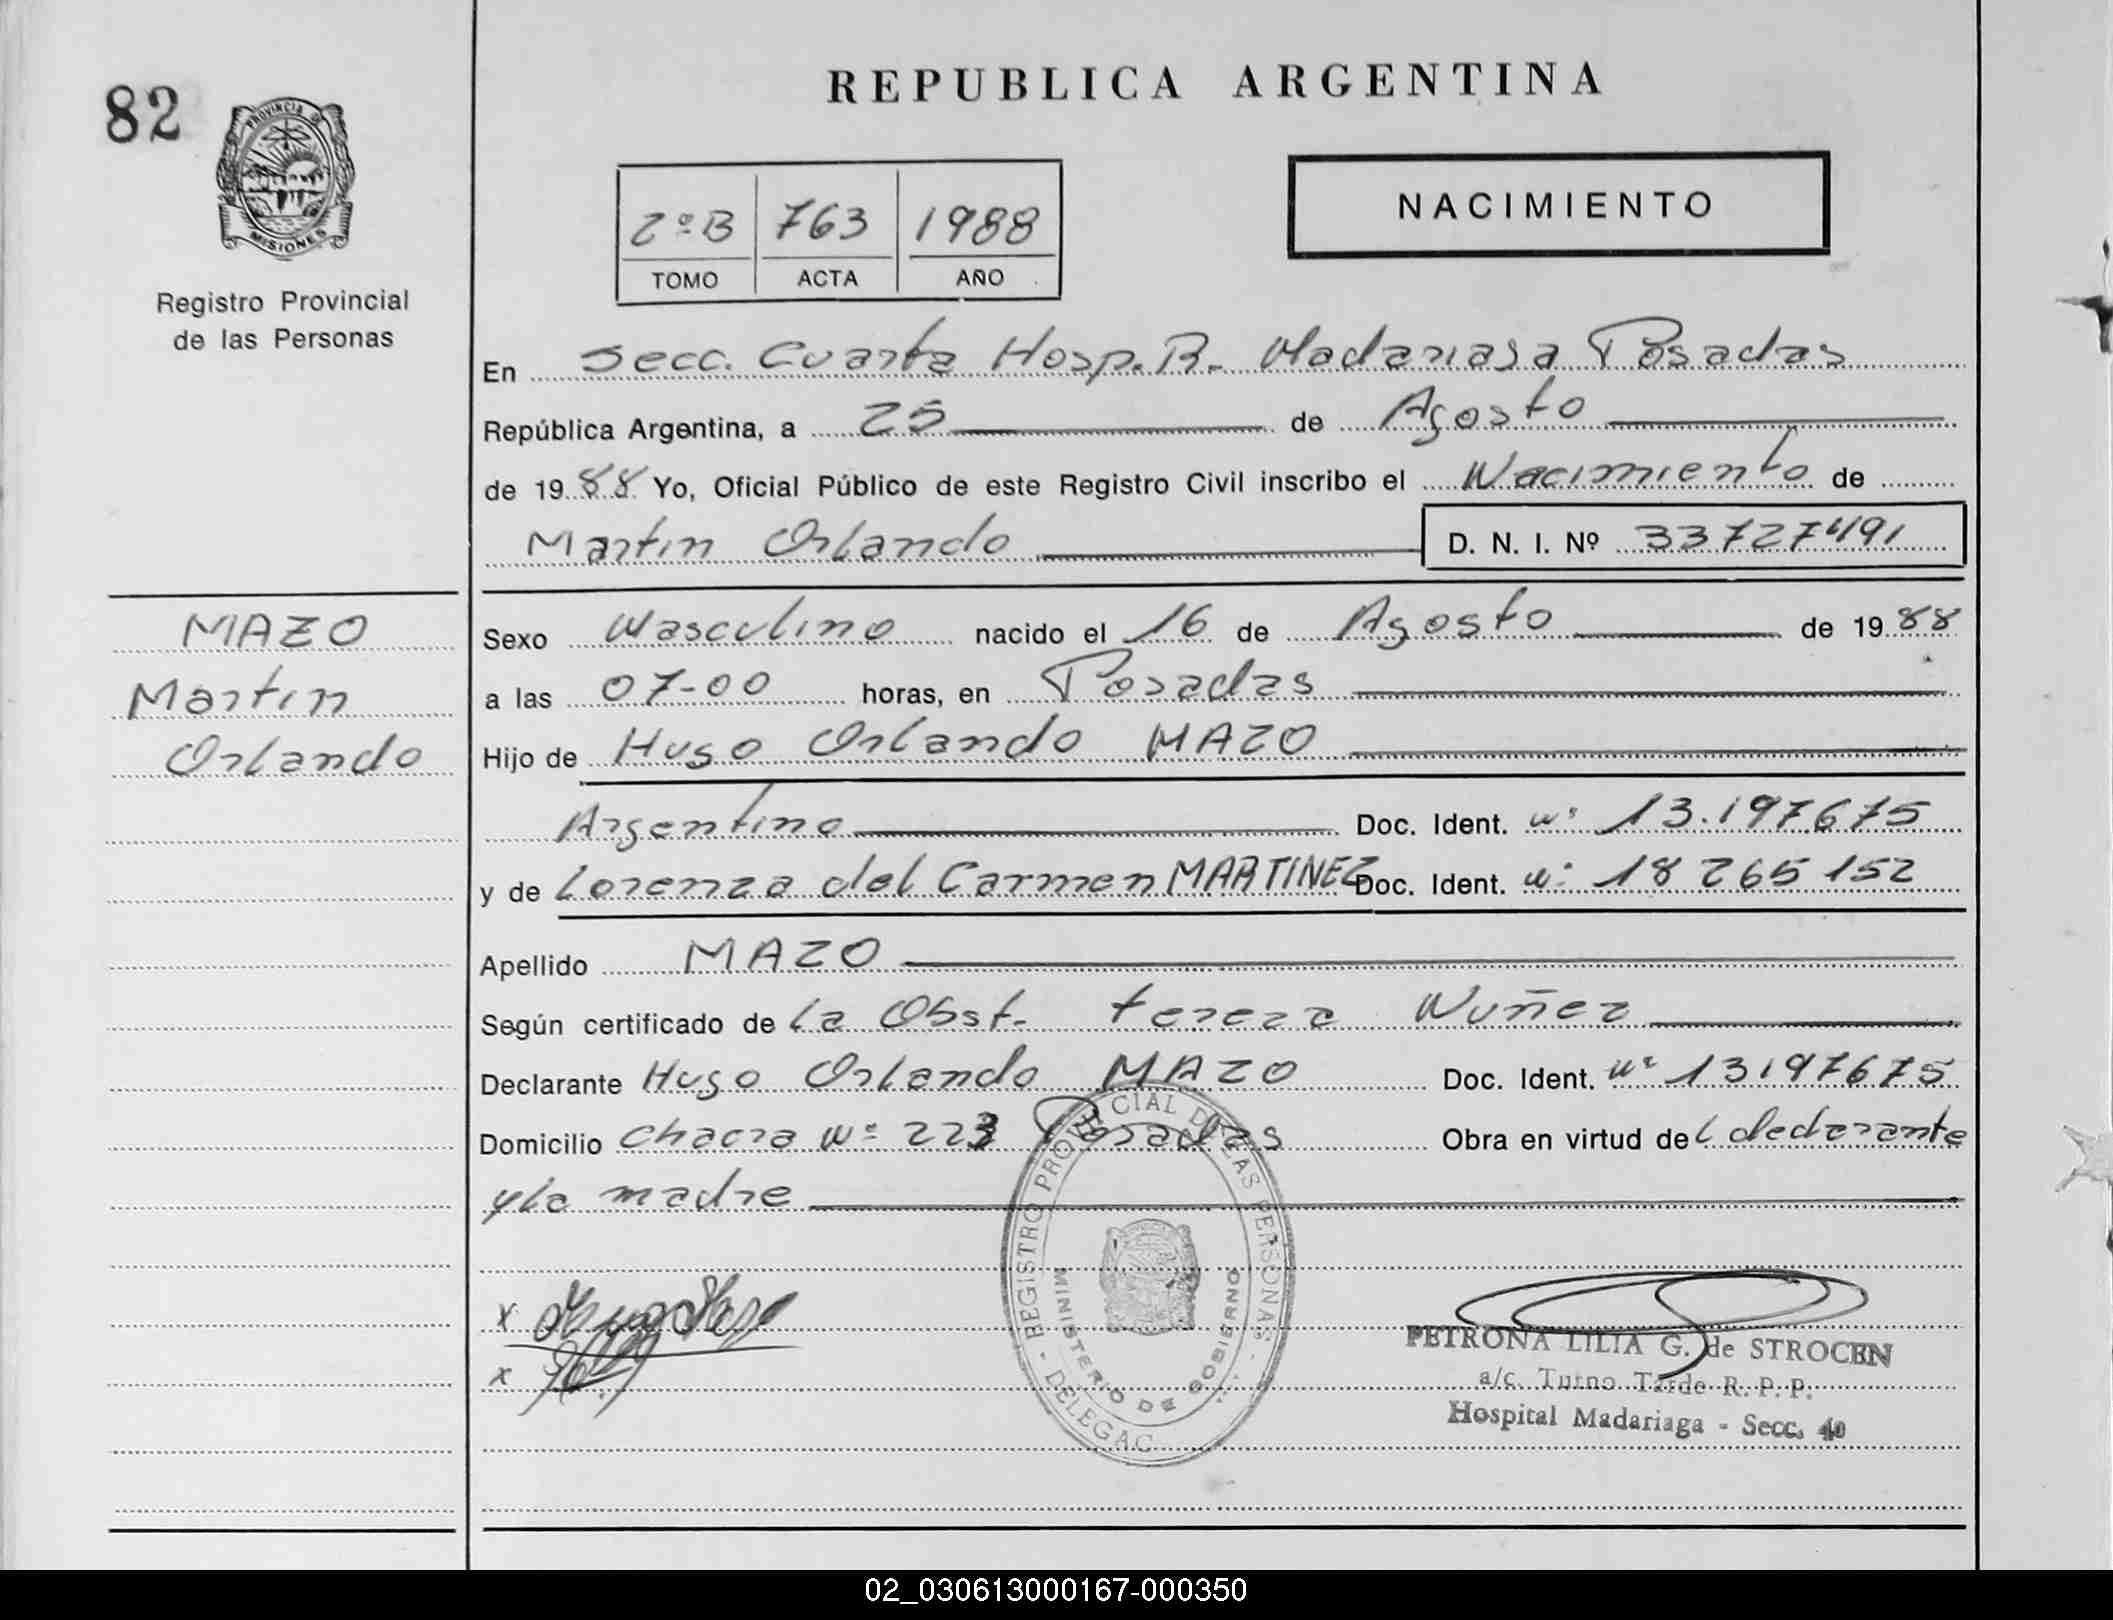 82
PROVINCIA DE
MISIONES
Registro Provincial
de las Personas
REPUBLICA ARGENTINA
2º B 763 1988
TOMO ACTA AÑO
NACIMIENTO
En Secc. Cuarta Hosp. R. Madariaga Posadas
República Argentina, a 25 de Agosto
de 1988 Yo, Oficial Público de este Registro Civil inscribo el Nacimiento de
Martin Orlando D. N. I. Nº 33727491
MAZO
Martin
Orlando
Sexo Masculino nacido el 16 de Agosto de 1988
a las 07-00 horas, en Posadas
Hijo de Hugo Orlando MAZO
Argentino Doc. Ident. nº 13.197675
y de Lorenza del Carmen MARTINEZ Doc. Ident. nº 18265152
Apellido MAZO
Según certificado de la Obst. tereza Nuñez
Declarante Hugo Orlando MAZO Doc. Ident. nº 13197675
Domicilio chacra Nº 223 Posadas Obra en virtud del declarante
y la madre
REGISTRO PROVINCIAL DE LAS PERSONAS - DELEGAC
MINISTERIO DE GOBIERNO
x
x
PETRONA LILIA G. de STROCEN
a/c. Turno Tarde R. P. P.
Hospital Madariaga - Secc. 4a
02_030613000167-000350